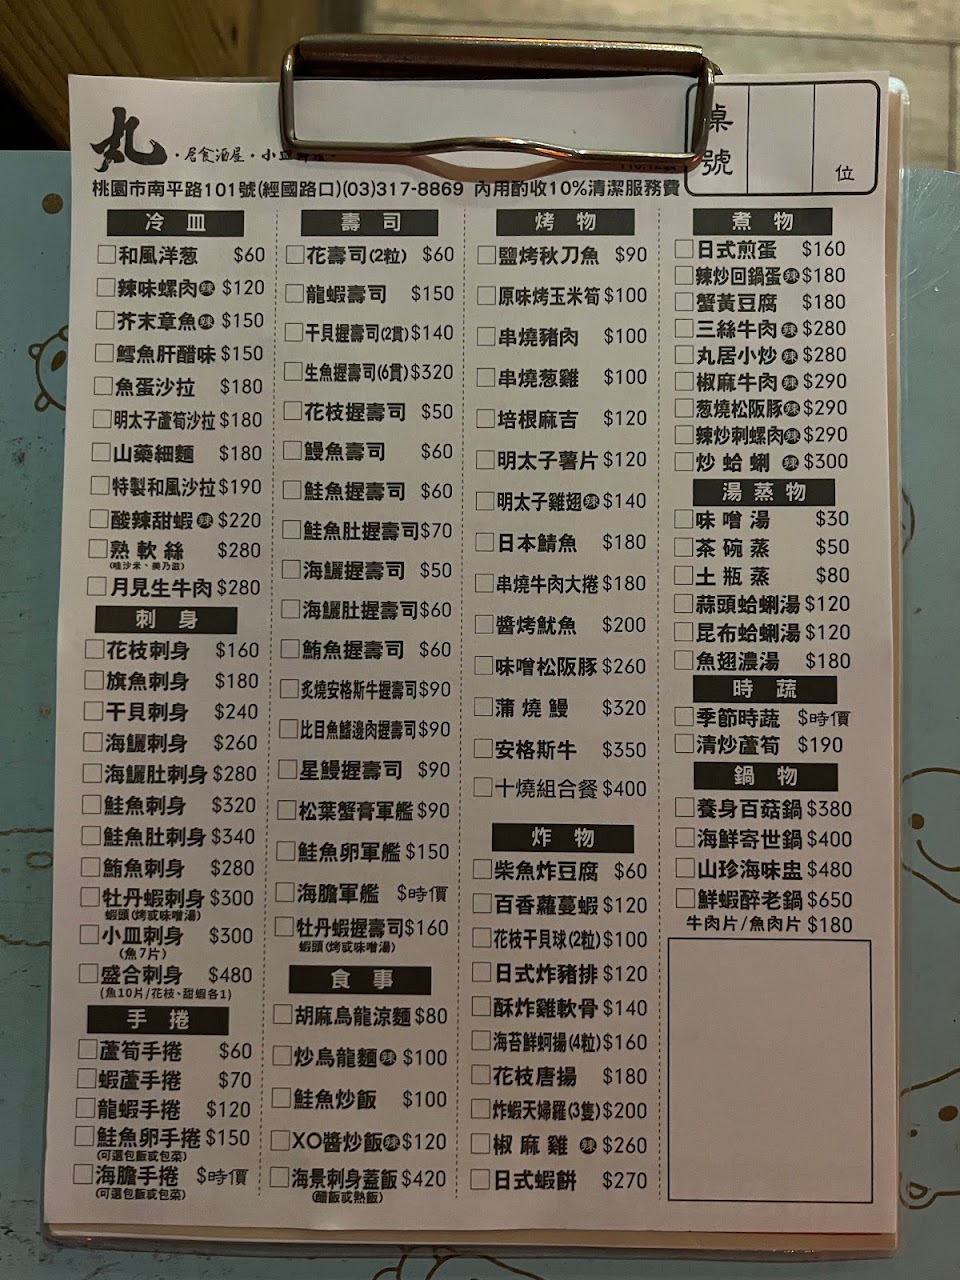 丸 ・居食酒屋・小皿料理・
桌號
位
桃園市南平路101號(經國路口)(03)317-8869 內用酌收10%清潔服務費
冷皿
和風洋葱 $60
辣味螺肉辣 $120
芥末章魚辣 $150
鱈魚肝醋味 $150
魚蛋沙拉 $180
明太子蘆筍沙拉 $180
山藥細麵 $180
特製和風沙拉 $190
酸辣甜蝦辣 $220
熟軟絲 $280
(哇沙米、美乃滋)
月見生牛肉 $280
刺身
花枝刺身 $160
旗魚刺身 $180
干貝刺身 $240
海鱺刺身 $260
海鱺肚刺身 $280
鮭魚刺身 $320
鮭魚肚刺身 $340
鮪魚刺身 $280
牡丹蝦刺身 $300
蝦頭(烤或味噌湯)
小皿刺身 $300
(魚7片)
盛合刺身 $480
(魚10片/花枝、甜蝦各1)
手捲
蘆筍手捲 $60
蝦蘆手捲 $70
龍蝦手捲 $120
鮭魚卵手捲 $150
(可選包飯或包菜)
海膽手捲 $時價
(可選包飯或包菜)
壽司
花壽司(2粒) $60
龍蝦壽司 $150
干貝握壽司(2貫) $140
生魚握壽司(6貫) $320
花枝握壽司 $50
鰻魚壽司 $60
鮭魚握壽司 $60
鮭魚肚握壽司 $70
海鱺握壽司 $50
海鱺肚握壽司 $60
鮪魚握壽司 $60
炙燒安格斯牛握壽司 $90
比目魚鰭邊肉握壽司 $90
星鰻握壽司 $90
松葉蟹膏軍艦 $90
鮭魚卵軍艦 $150
海膽軍艦 $時價
牡丹蝦握壽司 $160
蝦頭(烤或味噌湯)
食事
胡麻烏龍涼麵 $80
炒烏龍麵辣 $100
鮭魚炒飯 $100
XO醬炒飯辣 $120
海景刺身蓋飯 $420
(醋飯或熟飯)
烤物
鹽烤秋刀魚 $90
原味烤玉米筍 $100
串燒豬肉 $100
串燒葱雞 $100
培根麻吉 $120
明太子薯片 $120
明太子雞翅辣 $140
日本鯖魚 $180
串燒牛肉大捲 $180
醬烤魷魚 $200
味噌松阪豚 $260
蒲燒鰻 $320
安格斯牛 $350
十燒組合餐 $400
炸物
柴魚炸豆腐 $60
百香蘿蔓蝦 $120
花枝干貝球(2粒) $100
日式炸豬排 $120
酥炸雞軟骨 $140
海苔鮮蚵揚(4粒) $160
花枝唐揚 $180
炸蝦天婦羅(3隻) $200
椒麻雞 辣 $260
日式蝦餅 $270
煮物
日式煎蛋 $160
辣炒回鍋蛋辣 $180
蟹黃豆腐 $180
三絲牛肉辣 $280
丸居小炒辣 $280
椒麻牛肉辣 $290
葱燒松阪豚辣 $290
辣炒刺螺肉辣 $290
炒蛤蜊 辣 $300
湯蒸物
味噌湯 $30
茶碗蒸 $50
土瓶蒸 $80
蒜頭蛤蜊湯 $120
昆布蛤蜊湯 $120
魚翅濃湯 $180
時蔬
季節時蔬 $時價
清炒蘆筍 $190
鍋物
養身百菇鍋 $380
海鮮寄世鍋 $400
山珍海味盅 $480
鮮蝦醉老鍋 $650
牛肉片/魚肉片 $180